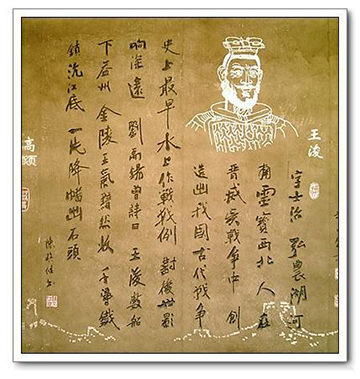 王浚
字士治 弘農湖 河
南靈寶西北 人 在
晉滅吳戰争中 創
造出我國古代戰争
史上最早水上作戰戰例 對後世影
响深遠 劉禹錫曾詩曰 王浚楼船
下益州 金陵王氣黯然收 千尋鐵
鎖沉江底 一片降幡出石頭
高颎